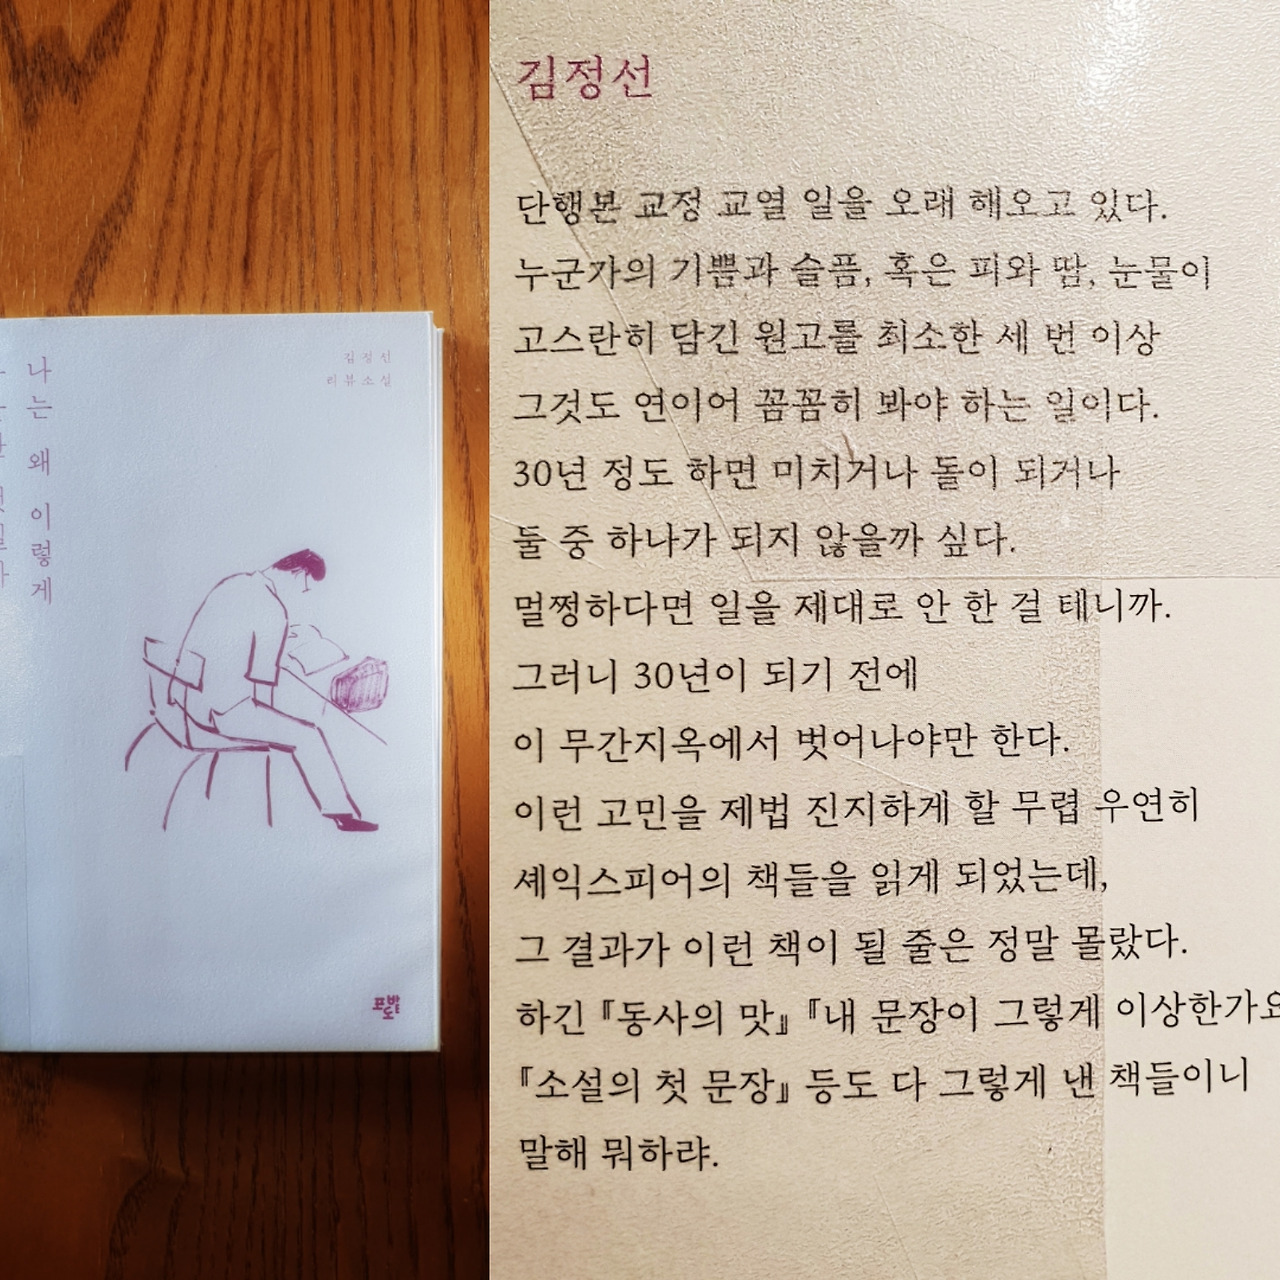 나는 왜 이렇게
김정선
리뷰소설
포도밭
김정선
단행본 교정 교열 일을 오래 해오고 있다.
누군가의 기쁨과 슬픔, 혹은 피와 땀, 눈물이
고스란히 담긴 원고를 최소한 세 번 이상
그것도 연이어 꼼꼼히 봐야 하는 일이다.
30년 정도 하면 미치거나 돌이 되거나
둘 중 하나가 되지 않을까 싶다.
멀쩡하다면 일을 제대로 안 한 걸 테니까.
그러니 30년이 되기 전에
이 무간지옥에서 벗어나야만 한다.
이런 고민을 제법 진지하게 할 무렵 우연히
셰익스피어의 책들을 읽게 되었는데,
그 결과가 이런 책이 될 줄은 정말 몰랐다.
하긴 『동사의 맛』 『내 문장이 그렇게 이상한가요
『소설의 첫 문장』 등도 다 그렇게 낸 책들이니
말해 뭐하랴.